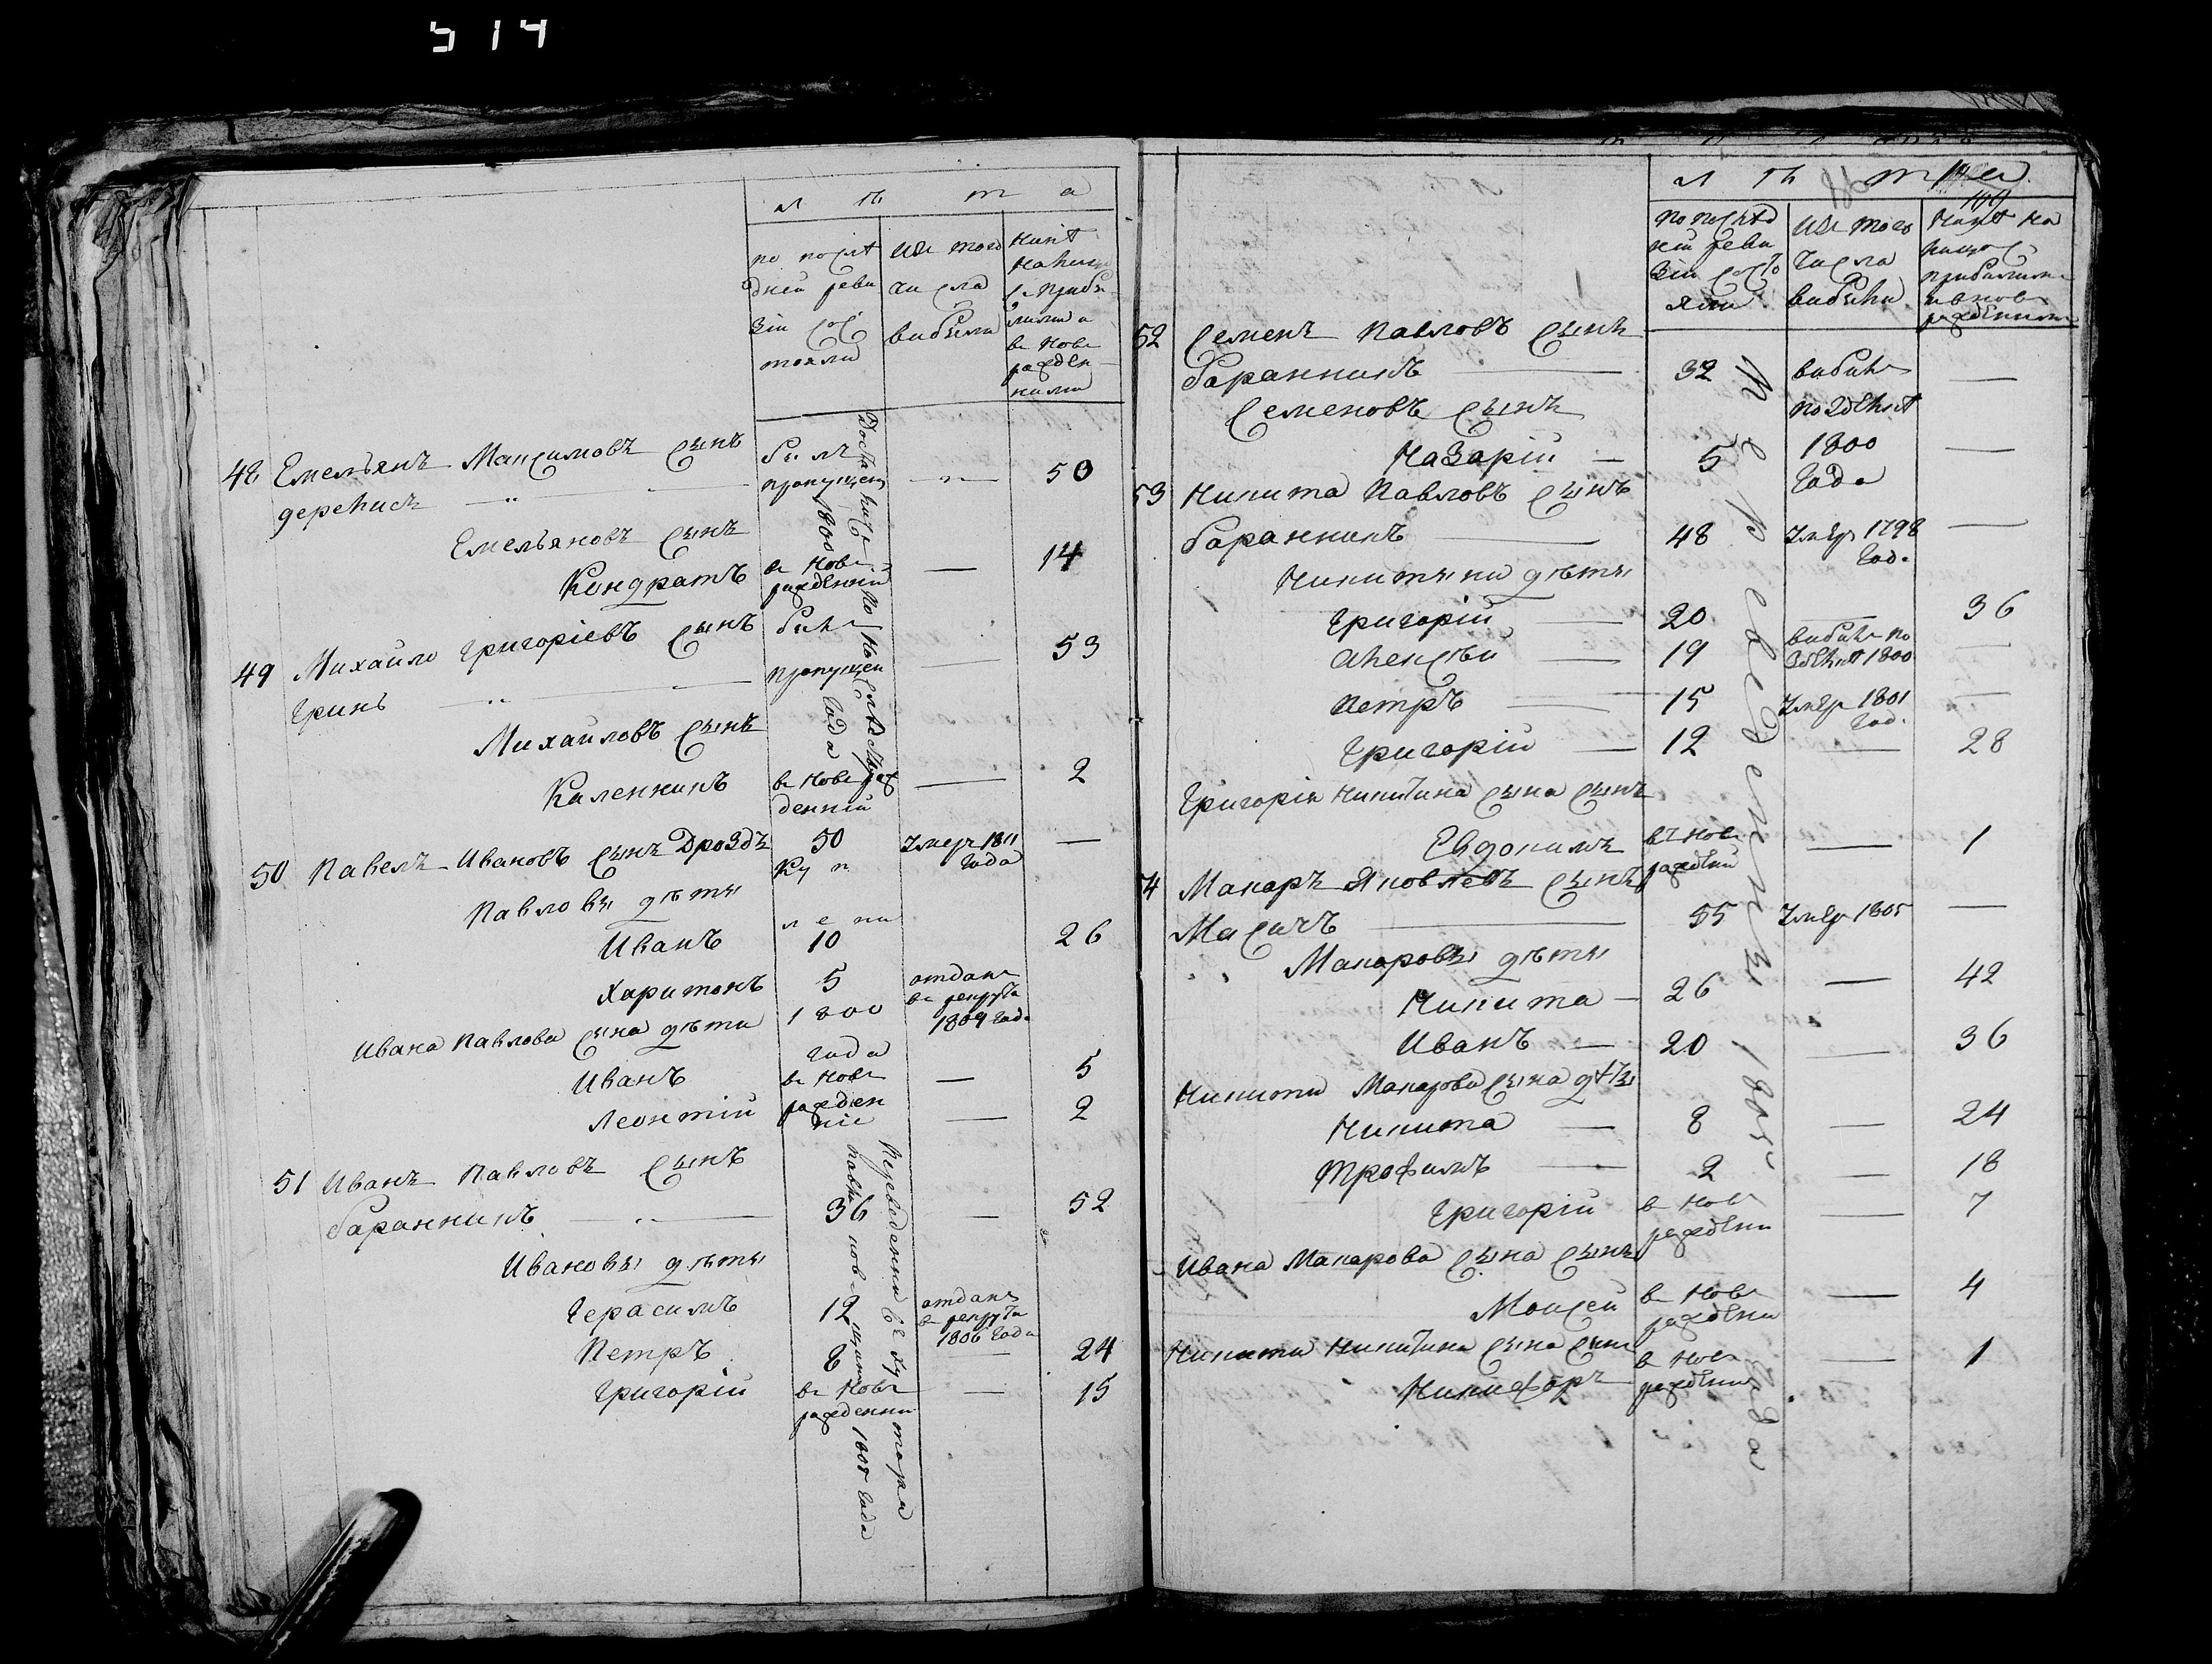 514
лѣта
по послѣ
дней реви
зіи сос
тояли
изъ того
числа
выбыли
нынѣ
на лицо
съ прибы
лыми и
въ новь
рожден
ными
48 Емельянъ Максимовъ сынъ
былъ
пропущен
50
Емельяновъ сынъ
Кондратъ
въ новь
рожденній
14
49 Михайло Григоріевъ сынъ
былъ
Гринь
пропущен
53
Михайловъ сынъ
Каленникъ
въ новь рож
денній
2
50 Павелъ Ивановъ сынъ Дроздъ
50
умер 1811
года
Павловы дѣты
куп
лени
Иванъ
10
26
Харитонъ
5
отданъ
въ рекрута
1809 года
Ивана Павлова сына дѣти
1800
года
Иванъ
въ новь
5
Леонтій
рожден
ніе
2
51 Иванъ Павловъ сынъ
баранникъ
36
52
Ивановы дѣты
Герасимъ
12
отданъ
въ рекрута
1806 года
Петръ
8
24
Григорій
въ новь
рожденни
15
Переведенни въ ху тора
1808 года
лѣта
по послѣд
ній реви
зіи состо
яли
изъ того
числа
выбыли
52 Семенъ Павловъ сынъ
баранникъ
32
выбылъ
Семеновъ сынъ
по здѣлкѣ
Назарій
5
1800
года
53 Никита Павловъ сынъ
баранникъ
48
умер 1798
год.
Никитыни дѣты
Григорій
20
36
Алексѣй
19
выбылъ по
здѣлкѣ 1800
Петръ
15
умер 1801
год.
Григорій
12
28
Григорія Никитина сына сынъ
Евдокимъ
въ новь
рожденій
1
54 Макаръ Яковлевъ сынъ
Масичъ
55
умер 1805
Макаровы дѣты
Никита
26
42
Иванъ
20
36
Никиты Макарова сына дѣты
Никита
8
24
Трофимъ
2
18
Григорій
въ новь
рожденни
7
Ивана Макарова сына сынъ
Моисей
въ новь
рожденни
4
Никиты Никитина сына сынъ
Никифоръ
въ новь
рожденни
1
Переведенны 1808 года